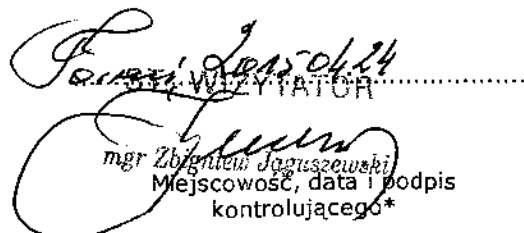 2015.04.24
ST. WIZYTATOR
mgr Zbigniew Jaguszewski
Miejscowość, data i podpis
kontrolującego*